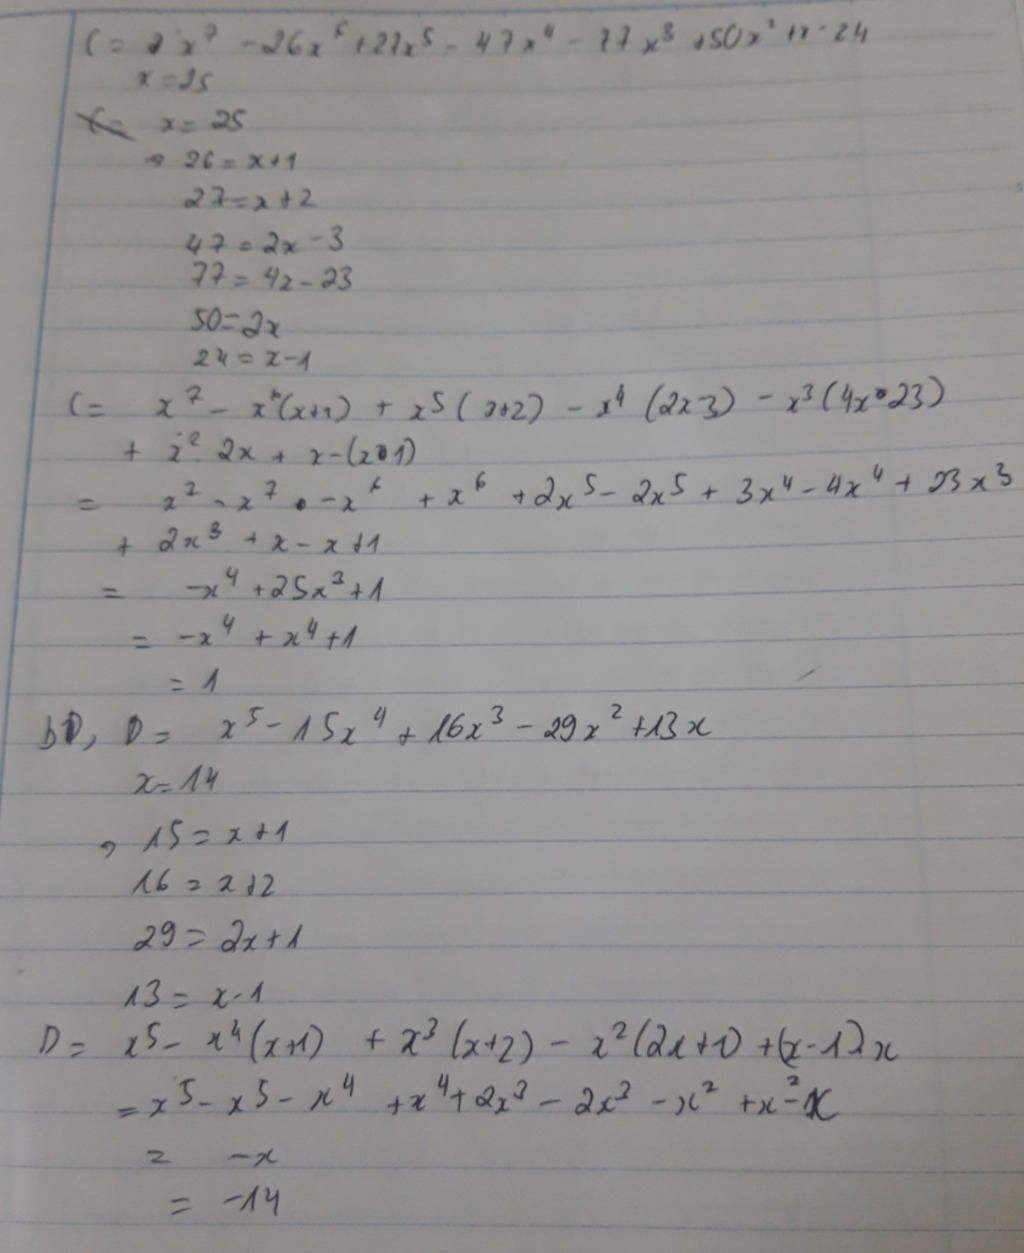 C = x⁷ - 26x⁶ + 27x⁵ - 47x⁴ - 77x³ + 50x² + x - 24
x = 25
C = x = 25
⇒ 26 = x + 1
27 = x + 2
47 = 2x - 3
77 = 4x - 23
50 = 2x
24 = x - 1
C = x⁷ - x⁶(x+1) + x⁵(x+2) - x⁴(2x-3) - x³(4x-23)
+ x². 2x + x - (x-1)
= x⁷ - x⁷ - x⁶ + x⁶ + 2x⁵ - 2x⁵ + 3x⁴ - 4x⁴ + 23x³
+ 2x³ + x - x + 1
= -x⁴ + 25x³ + 1
= -x⁴ + x⁴ + 1
= 1
b, D = x⁵ - 15x⁴ + 16x³ - 29x² + 13x
x = 14
⇒ 15 = x + 1
16 = x + 2
29 = 2x + 1
13 = x - 1
D = x⁵ - x⁴(x+1) + x³(x+2) - x²(2x+1) + (x-1)x
= x⁵ - x⁵ - x⁴ + x⁴ + 2x³ - 2x³ - x² + x² - x
= -x
= -14